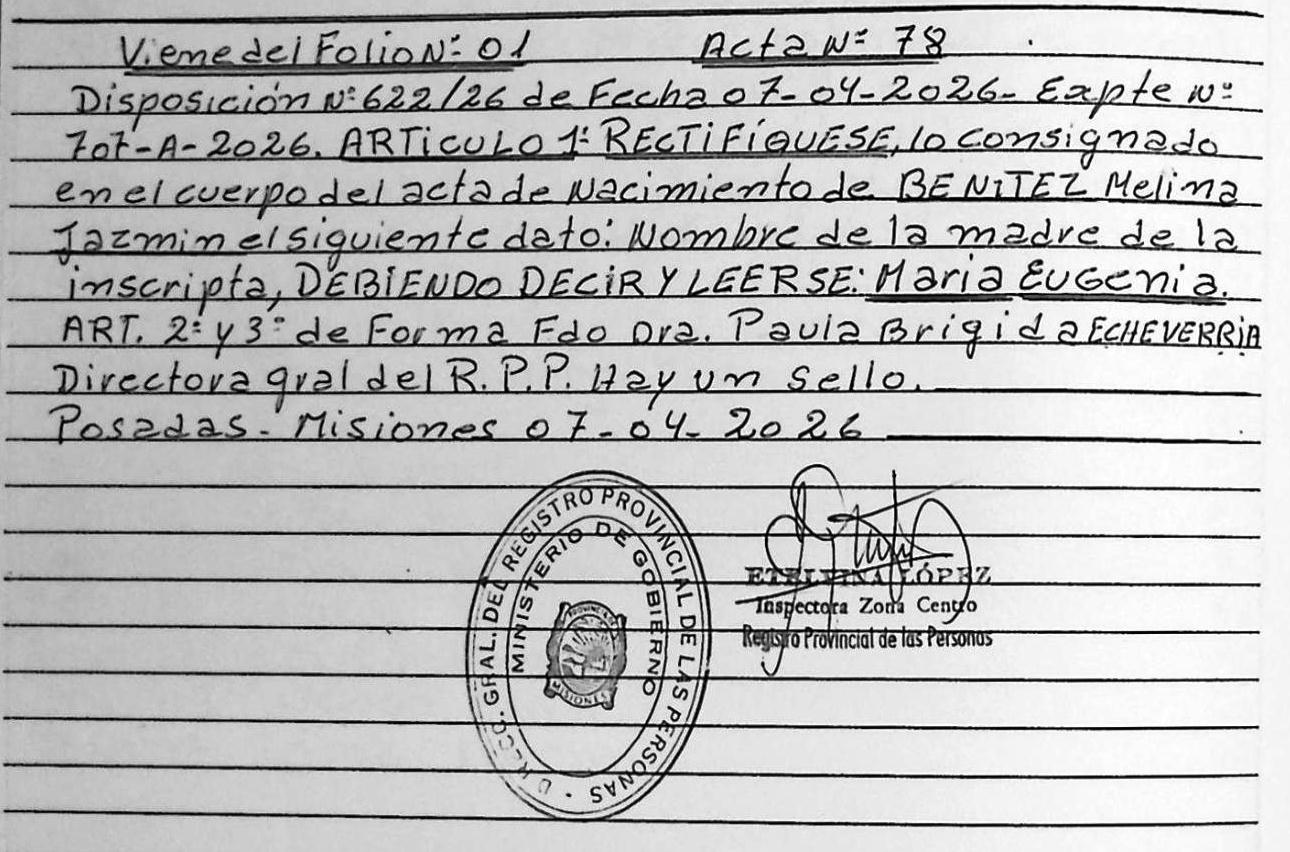 Viene del Folio Nº 01 Acta Nº 78
Disposición Nº 622/26 de Fecha 07-04-2026- Expte Nº
707-A-2026. ARTICULO 1º RECTIFÍQUESE, lo consignado
en el cuerpo del acta de Nacimiento de BENITEZ Melina
Jazmin el siguiente dato: Nombre de la madre de la
inscripta, DEBIENDO DECIR Y LEERSE: Maria EUGenia.
ART. 2º y 3º de Forma Fdo Dra. Paula Brigida ECHEVERRIA
Directora gral del R.P.P. Hay un sello.
Posadas - Misiones 07-04-2026
GRAL. DEL REGISTRO PROVINCIAL DE LAS PERSONAS
MINISTERIO DE GOBIERNO
MISIONES
ETELVINA LÓPEZ
Inspectora Zona Centro
Registro Provincial de las Personas